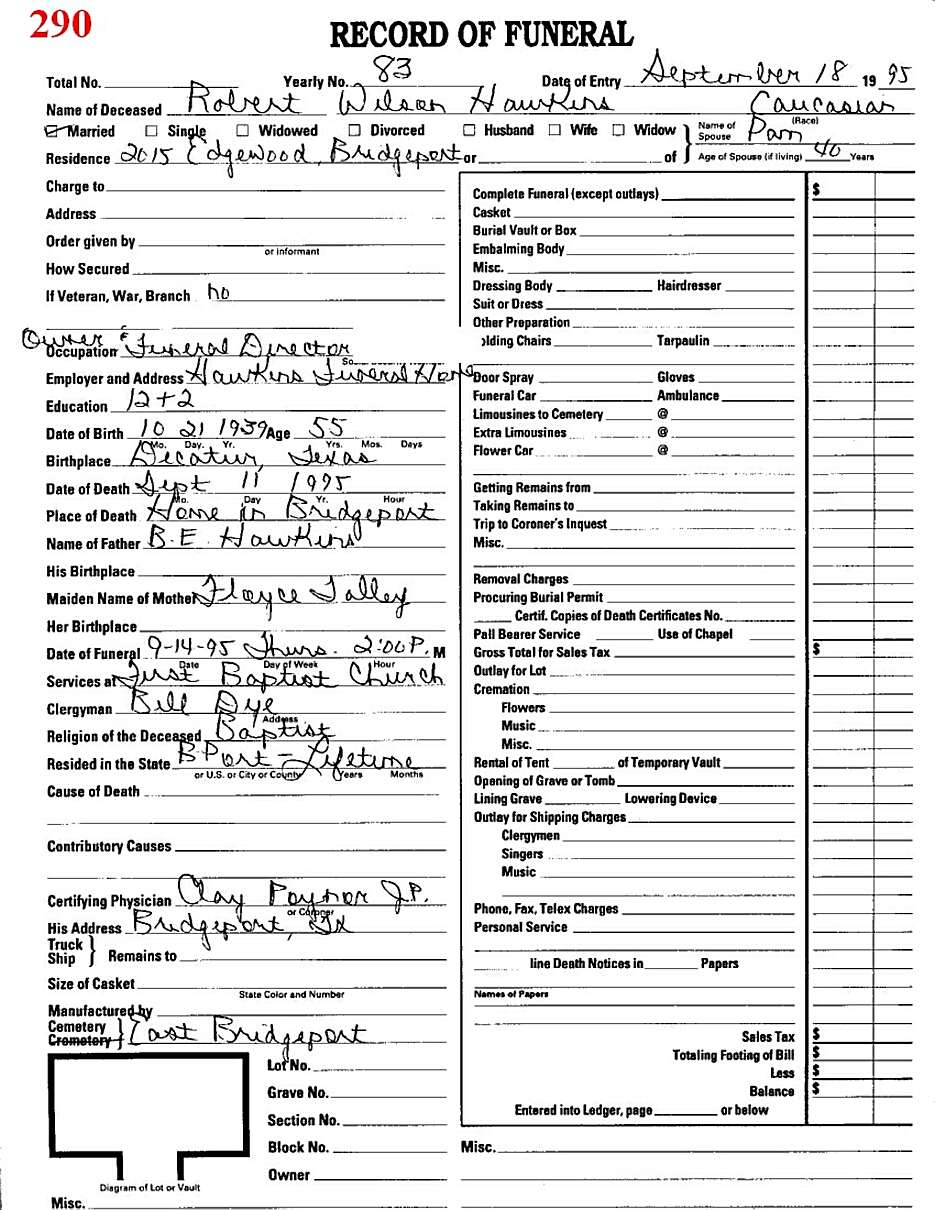 290
RECORD OF FUNERAL
Total No. Yearly No. 83 Date of Entry September 18 19 95
Name of Deceased Robert Wilson Hawkins Caucasian
(Race)
☑ Married ☐ Single ☐ Widowed ☐ Divorced ☐ Husband ☐ Wife ☐ Widow } Name of Spouse Pam
Residence 2015 Edgewood, Bridgeport or of Age of Spouse (if living) 40 Years
Charge to
Address
Order given by
or informant
How Secured
If Veteran, War, Branch no
Owner &
Occupation Funeral Director
Employer and Address Hawkins Funeral Home
Education 12+2
Date of Birth 10 21 1939 Age 55
Mo. Day. Yr. Yrs. Mos. Days
Birthplace Decatur, Texas
Date of Death Sept 11 1995
Mo. Day Yr. Hour
Place of Death Home in Bridgeport
Name of Father B.E. Hawkins
His Birthplace
Maiden Name of Mother Flayce Talley
Her Birthplace
Date of Funeral 9-14-95 Thurs. 2:00 P. M
Date Day of Week Hour
Services at First Baptist Church
Clergyman Bill Dye
Address
Religion of the Deceased Baptist
Resided in the State B.Port - Lifetime
or U.S. or City or County Years Months
Cause of Death
Contributory Causes
Certifying Physician Clay Poynor J.P.
or Coroner
His Address Bridgeport, Tx
Truck
Ship } Remains to
Size of Casket
State Color and Number
Manufactured by
Cemetery
Crematory } East Bridgeport
Lot No.
Grave No.
Section No.
Block No.
Owner
Diagram of Lot or Vault
Misc.
Complete Funeral (except outlays) $
Casket
Burial Vault or Box
Embalming Body
Misc.
Dressing Body Hairdresser
Suit or Dress
Other Preparation
olding Chairs Tarpaulin
Door Spray Gloves
Funeral Car Ambulance
Limousines to Cemetery @
Extra Limousines @
Flower Car @
Getting Remains from
Taking Remains to
Trip to Coroner's Inquest
Misc.
Removal Charges
Procuring Burial Permit
Certif. Copies of Death Certificates No.
Pall Bearer Service Use of Chapel
Gross Total for Sales Tax $
Outlay for Lot
Cremation
Flowers
Music
Misc.
Rental of Tent of Temporary Vault
Opening of Grave or Tomb
Lining Grave Lowering Device
Outlay for Shipping Charges
Clergymen
Singers
Music
Phone, Fax, Telex Charges
Personal Service
line Death Notices in Papers
Names of Papers
Sales Tax $
Totaling Footing of Bill $
Less $
Balance $
Entered into Ledger, page or below
Misc.